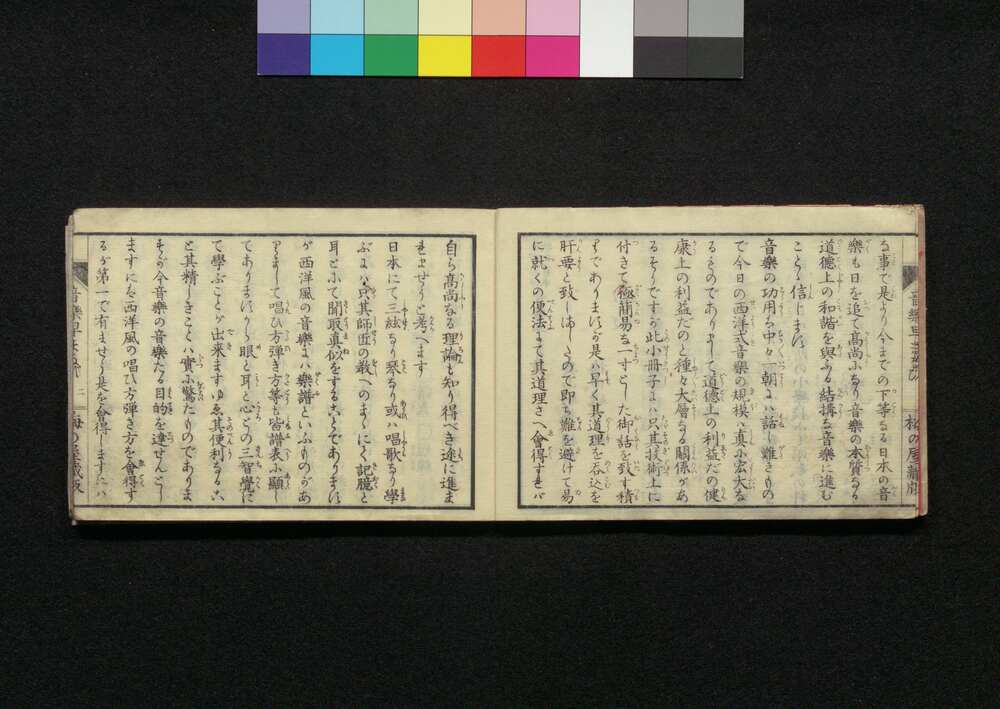 る事で是より今までの下等なる日本の音
樂も日を追て高尚ふなり音樂の本質なる
道德上の和諧を與ふる結搆な音樂に進む
ことゝ信じます
音樂の功用な中々一朝にハ話し難きもの
で今日の西洋式音樂の規模ハ眞ふ宏大な
るものでありまして道德上の利益だの健
康上の利益だのと種々大層なる關係があ
るそうですが此小冊子にハ只其技術上に
付きて極簡易な一寸とした御話を致す積
りでありますが是ハ早く其道理を呑込を
肝要と致しましたので即ち難を避けて易
に就くの便法にて其道理さへ會得すれバ
自ら高尚なる理論も知り得べき途に進ま
れませうと考へます
日本にて三絃なり琴なり或ハ唱歌なり學
ぶにハ只其師匠の敎へのまゝにく記臆と
耳とふて聞取眞似をすることであります
が西洋風の音樂にハ樂譜といふものがあ
りまして唱ひ方彈き方等も皆譜表ふ顯し
てありますから眼と耳と心との三智覺に
て學ぶことが出來ますゆゑ其便利なるこ
と其精しきことハ實ふ驚たものでありま
すが今音樂の音樂たる目的を達せんとし
ますにハ西洋風の唱ひ方彈き方を會得す
るが第一で有ませう是を會得しますにハ